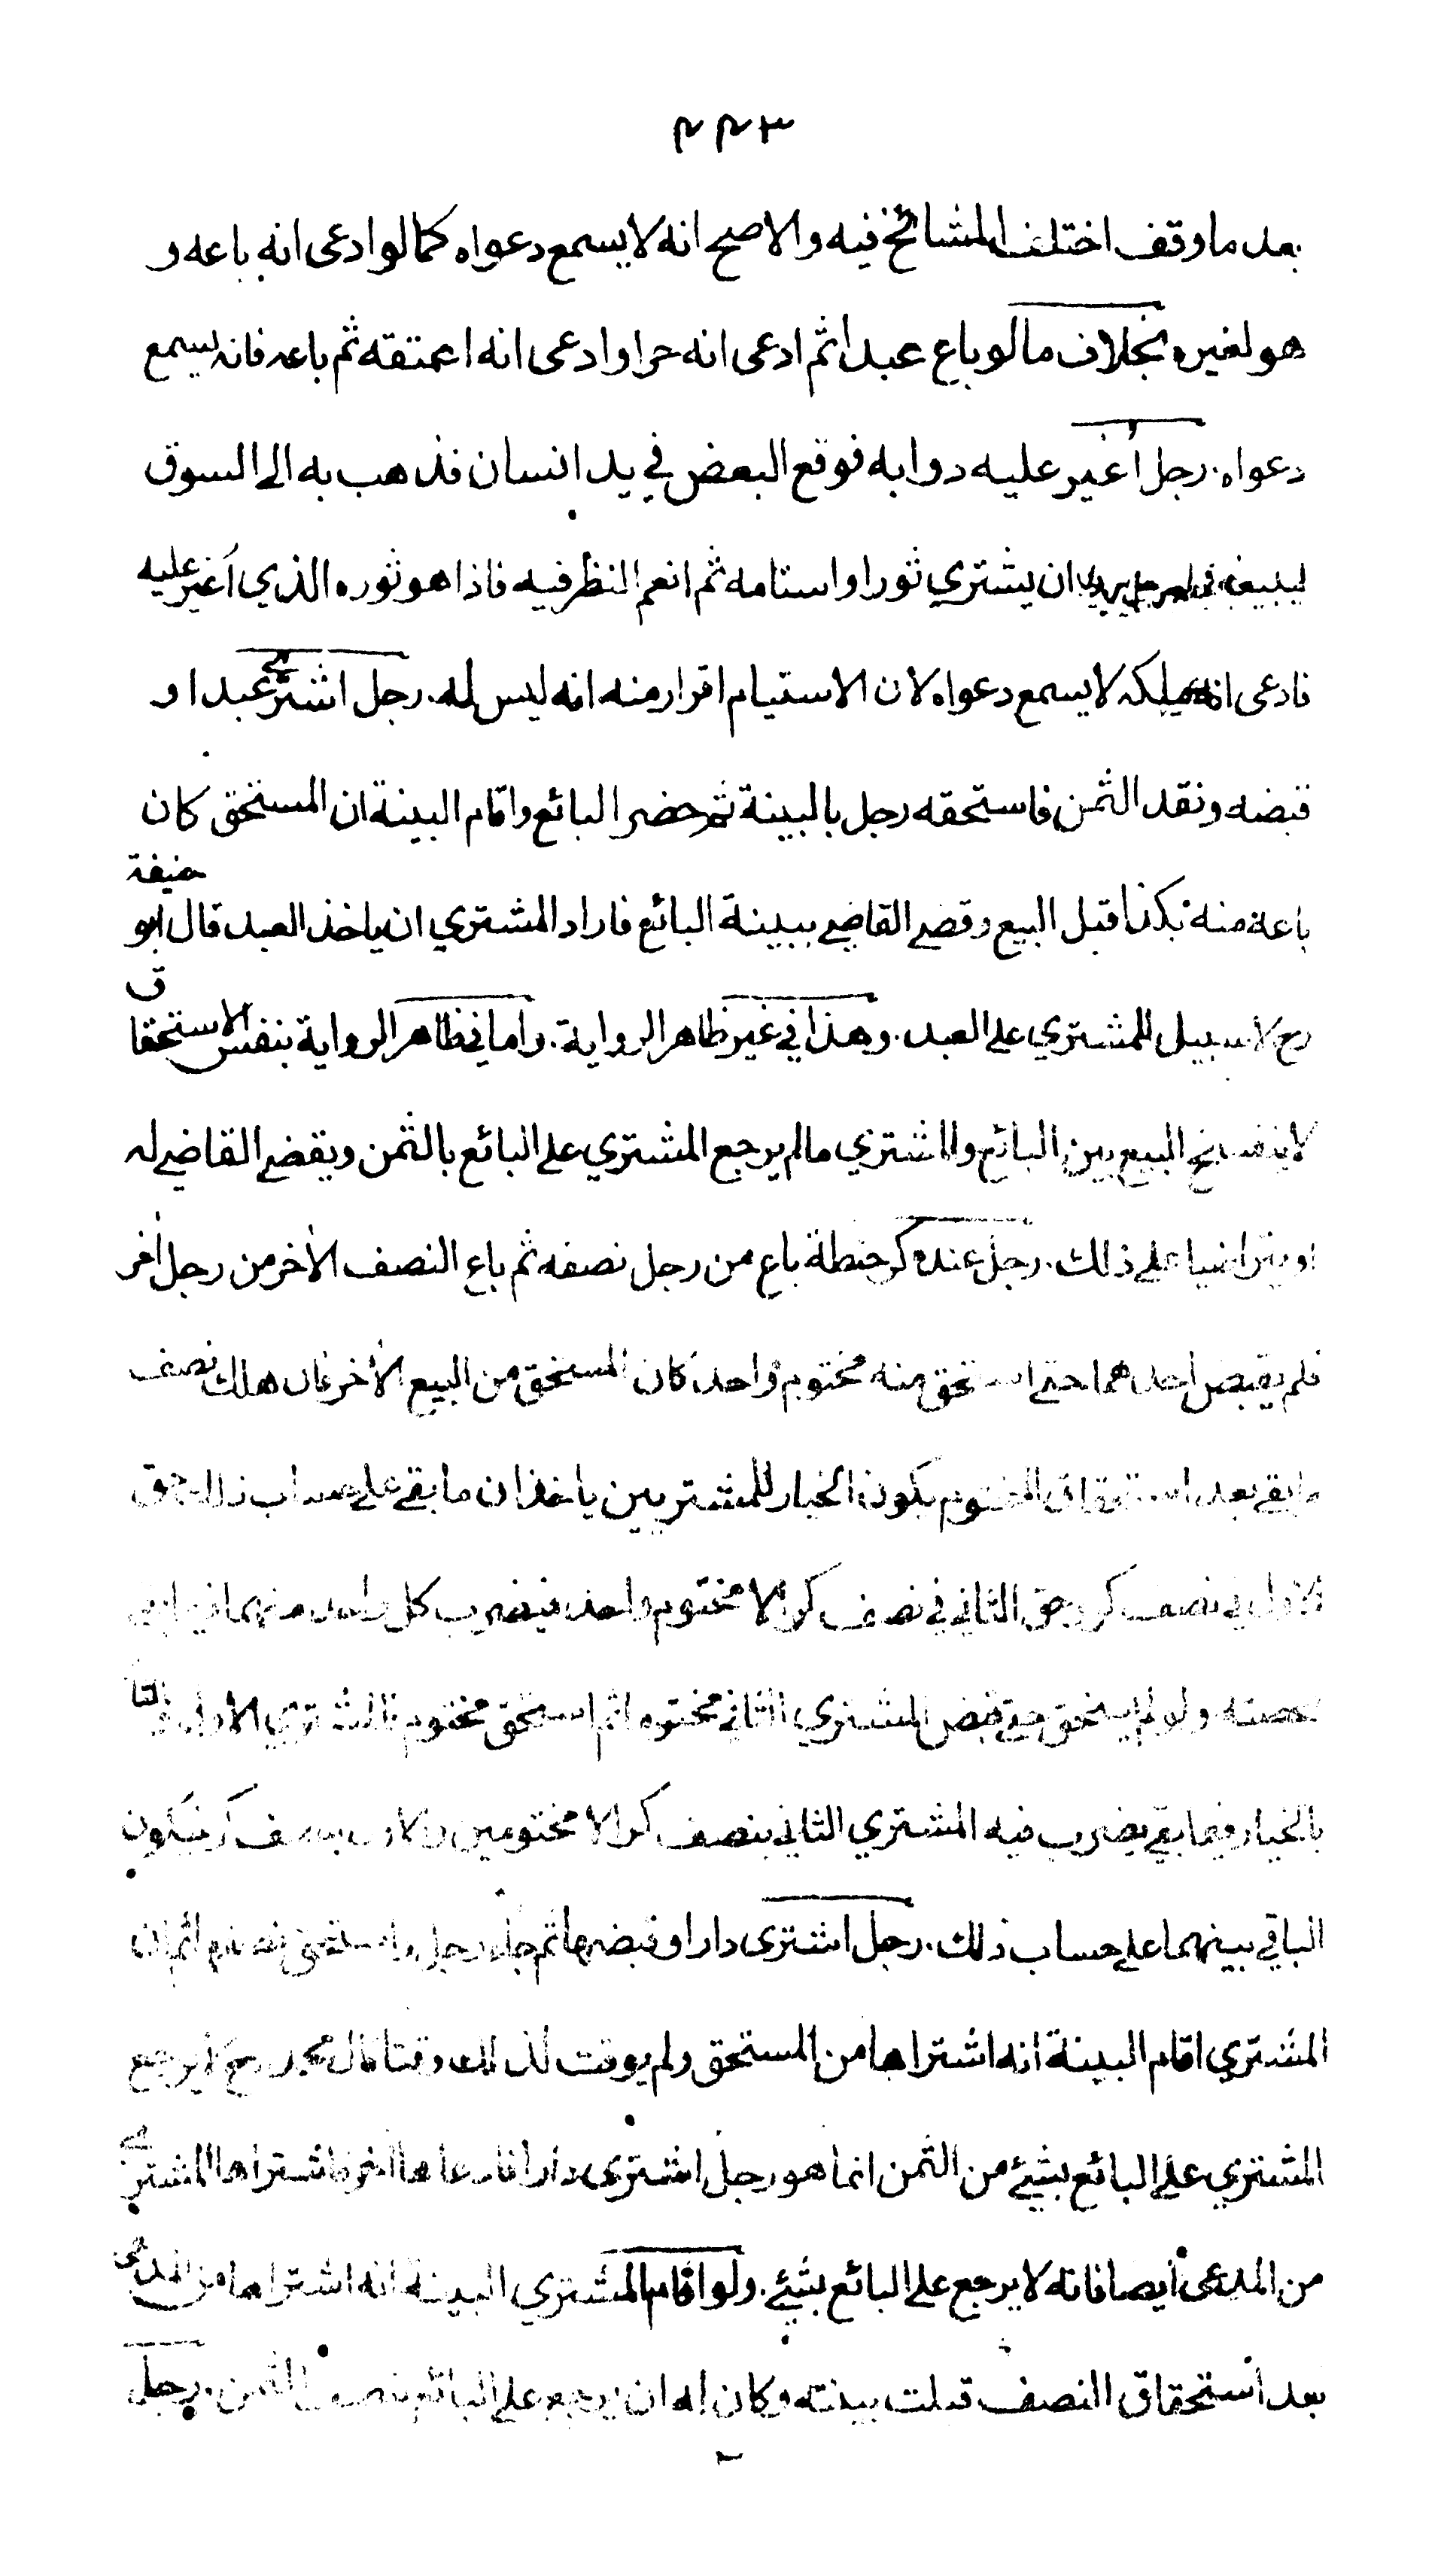 ٢٢٣
بعد ما وقف اختلف المشائخ فيه والاصح انه لا يسمع دعواه كما لو ادعى انه باعه و
هو لغيره بخلاف ما لو باع عبدا ثم ادعى انه حر او ادعى انه اعتقه ثم باعه فانه يسمع
دعواه. رجل أغير عليه دوابه فوقع البعض في يد انسان فذهب به الى السوق
ليبيعه ان يشتري ثورا واستامه ثم انعم النظر فيه فاذا هو ثوره الذي أغير عليه
فادعى انه ملكه لا يسمع دعواه لان الاستيام اقرار منه انه ليس له. رجل اشترى عبدا و
قبضه ونقد الثمن فاستحقه رجل بالبينة ثم حضر البائع واقام البينة ان المستحق كان
باعه منه بكذا قبل البيع وقضى القاضي ببينة البائع فاراد المشتري ان ياخذ العبد قال ابو حنيفة
رح لا سبيل للمشتري على العبد. وهذا في غير ظاهر الرواية. واما في ظاهر الرواية بنفس الاستحقاق
لا ينفسخ البيع بين البائع والمشتري ما لم يرجع المشتري على البائع بالثمن ويقضى القاضي له
او يتراضيا على ذلك. رجل عنده كر حنطة باع من رجل نصفه ثم باع النصف الأخر من رجل أخر
فلم يقبض احدهما حتى استحق منه مختوم واحد كان المستحق من البيع الأخر فان هلك نصف
ما بقي بعد استحقاق المختوم يكون الخيار للمشتريين ياخذان ما بقي على حساب ذلك حق
الاول في نصف كر وحق الثاني في نصف كر الا مختوم واحد فيضرب كل واحد منهما فيما بقي
بحصته ولو لم يستحق حتى قبض المشتري الثاني مختوما ثم استحق مختوم فالمشتري الاول
بالخيار فيما بقي يضرب فيه المشتري الثاني بنصف كر الا مختومين والاول بنصف كر فيكون
الباقي بينهما على حساب ذلك. رجل اشترى دارا وقبضها ثم جاء رجل واستحق نصفها ثم ان
المشتري اقام البينة انه اشتراها من المستحق ولم يوقت لذلك وقتا قال محمد رح لا يرجع
المشتري على البائع بشيء من الثمن انما هو رجل اشترى دارا فادعاها أخر فاشتراها المشتري
من المدعى ايضا فانه لا يرجع على البائع بشيء. ولو اقام المشتري البينة انه اشتراها من المدعى
بعد استحقاق النصف قبلت بينته وكان له ان يرجع على البائع بنصف الثمن. رجل